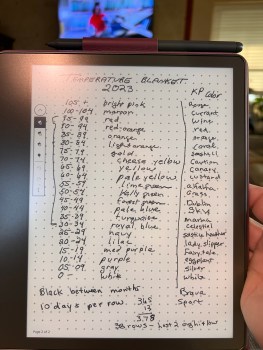 TEMPERATURE BLANKET
2023
KP color
105 + bright pink Rouge
100-104 maroon currant
95-99 red wine
90-94 red-orange red
85-89 orange orange
80-84 light orange coral
75-79 gold
70-74 cheese yellow Caution
65-69 yellow Canary
60-64 pale yellow custard
55-59 lime green alfalfa
50-54 Kelly green Grass
45-49 forest green Dublin
40-44 pale blue Sky
35-39 turquoise marina
30-34 royal blue celestial
25-29 navy
20-24 lilac lady slipper
15-19 med purple Fairytale
10-14 purple eggplant
05-09 gray silver
0 - white white
Black between months Brava
10 days per row. Sport
365
13
378
38 rows - last 2 high/low